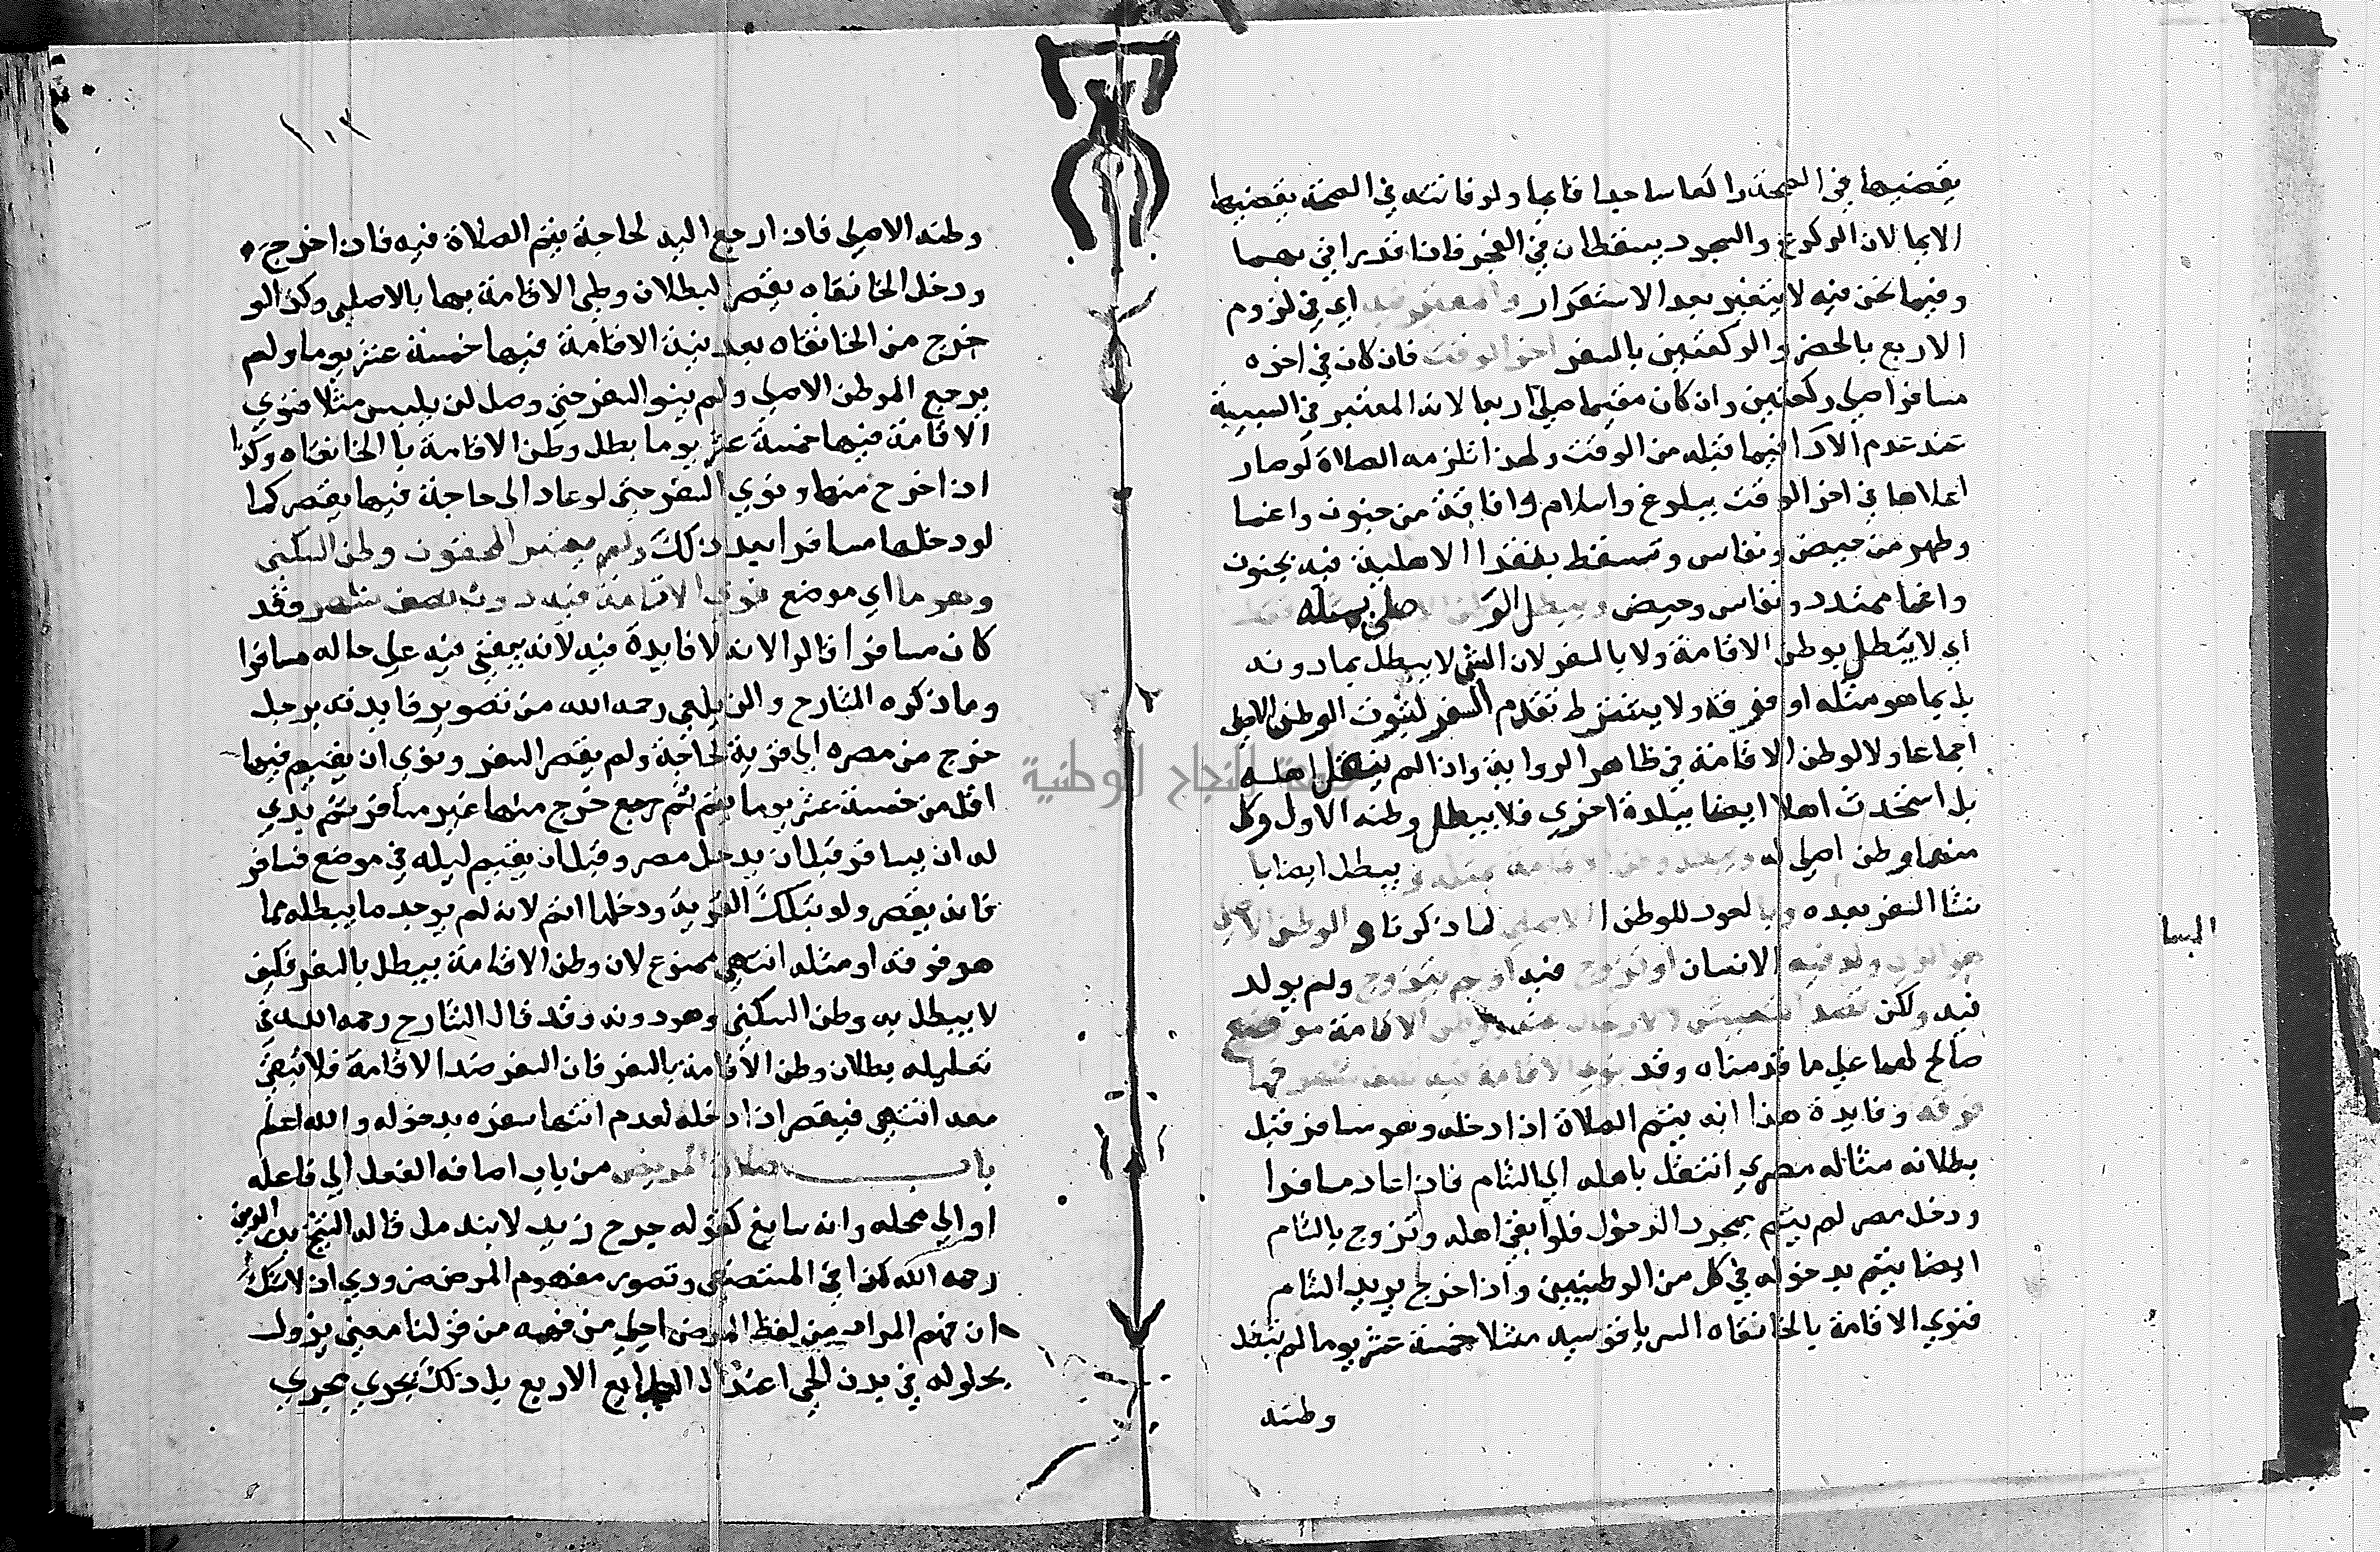 يقضيها في الصحة راكعا ساجدا قايما ولو فاتته في الصحة يقضيها
الايما لان الركوع والسجود يسقطان في العجز فاذا قدر اتي بهما
وفيما نحن فيه لا يتغير بعد الاستقرار والمعتبر فيه اي في لزوم
الاربع بالحضر والركعتين بالسفر اخر الوقت فان كان في اخره
مسافرا صلي ركعتين وان كان مقيما صلي اربعا لانه المعتبر في السببية
عند عدم الادا فيما قبله من الوقت ولهذا تلزمه الصلاة لو صار
اهلا لها في اخر الوقت ببلوغ واسلام وافاقة من جنون واغما
وطهر من حيض ونفاس وتسقط بفقد الاهلية فيه بجنون
واغما ممتد ونفاس وحيض ويبطل الوطن الاصلي بمثله فقط
اي لا يبطل بوطن الاقامة ولا بالسفر لان الشي لا يبطل بما دونه
بل بما هو مثله او فوقه ولا يشترط تقدم السفر لثبوت الوطن الاصلي
اجماعا ولا لوطن الاقامة في ظاهر الرواية واذا لم ينتقل اهله
بل استحدث اهلا ايضا ببلدة اخري فلا يبطل وطنه الاول وكل
منهما وطن اصلي له ويبطل وطن الاقامة بمثله ويبطل ايضا با
نشا السفر بعده وبالعود للوطن الاصلي لما ذكرنا والوطن الاصلي
هو الذي ولد فيه الانسان او تزوج فيه او لم يتزوج ولم يولد
فيه ولكن قصد التعيش لا الارتحال عنه ووطن الاقامة موضع
صالح لها علي ما قدمناه وقد نوي الاقامة فيه نصف شهر فما
فوقه وفايدة هذا انه يتم الصلاة اذا دخله وهو مسافر قبل
بطلانه مثاله مصري انتقل باهله الي الشام فاذا عاد مسافرا
ودخل مصر لم يتم بمجرد الدخول فلو ابقي اهله وتزوج بالشام
ايضا يتم بدخوله في كل من الوطنين واذا خرج يريد الشام
فنوي الاقامة بالخانقاه السرياقوسيه مثلا خمسة عشر يوما لم تبطل
وطنه
البسا
١٠٣
وطنه الاصلي فاذا رجع اليه لحاجة يتم الصلاة فيه فاذا خرج
ودخل الخانقاه يقصر لبطلان وطن الاقامة بها بالاصلي وكذا لو
خرج من الخانقاه بعد نية الاقامة فيها خمسة عشر يوما ولم
يرجع الوطن الاصلي ولم ينو السفر حتي وصل لبلبيس مثلا فنوي
الاقامة فيها خمسة عشر يوما بطل وطن الاقامة بالخانقاه وكذا
اذا خرج منها ونوي السفر حتي لو عاد الي حاجة فيها يقصر كما
لو دخلها مسافرا بعد ذلك ولم يعتبر المحققون وطن السكني
وهو ما اي موضع نوي الاقامة فيه دون نصف شهر وقد
كان مسافرا قالوا لانه لا فايدة فيه لانه يبقي فيه علي حاله مسافرا
وما ذكره الشارح والزيلعي رحمه الله من تصوير فايدته برجل
خرج من مصره الي قرية لحاجة ولم يقصد السفر ونوي ان يقيم فيها
اقل من خمسة عشر يوما يتم ثم رجع خرج منها غير مسافر ثم بدي
له ان يسافر قبل ان يدخل مصر وقبل ان يقيم ليله في موضع فسافر
فانه يقصر ولو بتلك القرية ودخلها اتم لانه لم يوجد ما يبطله مما
هو فوقه او مثله انتهي ممنوع لان وطن الاقامة يبطل بالسفر فكيف
لا يبطل به وطن السكني وهو دونه وقد قال الشارح رحمه الله في
تعليله بطلان وطن الاقامة بالسفر فان السفر ضد الاقامة فلا تبقي
معه انتهي فيقصر اذا دخله لعدم انتها سفره بدخوله والله اعلم
باب صلاة المريض من باب اضافه الفعل الي فاعله
او الي محله وانه سايغ كقوله جرح زيد لا يندمل قاله الشيخ بدر الدين
رحمه الله كذا في المستصفي وتصور مفهوم المرض ضروري اذ لا شك
ان فهم المراد من لفظ المرض اجلي من فهمه من قولنا معني يزول
بحلوله في بدن الحي اعتدال الطبايع الاربع بل ذلك يجري مجري
جامعة النجاح الوطنية